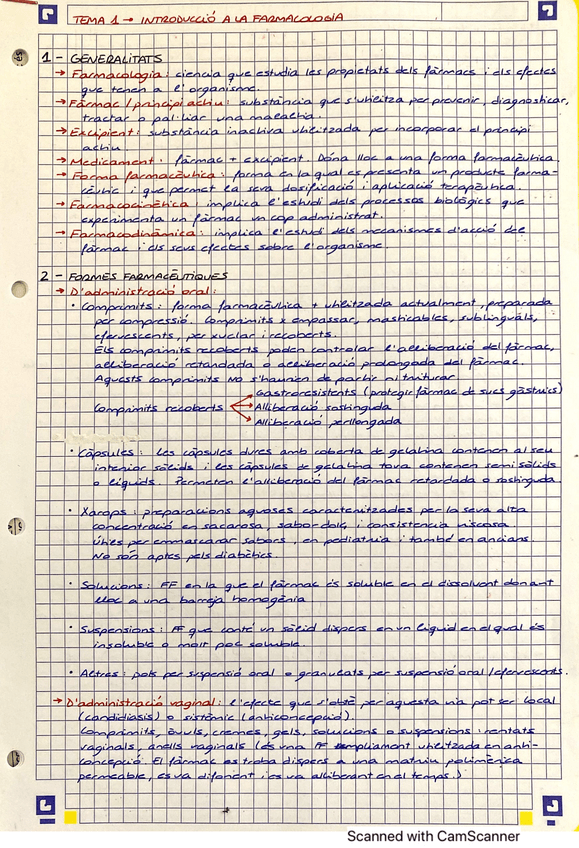 TEMA 1 → INTRODUCCIÓ A LA FARMACOLOGIA
1 - GENERALITATS
→ Farmacologia: ciencia que estudia les propietats dels fàrmacs i els efectes
que tenen a l'organisme.
→ Fàrmac / principi actiu: substància que s'utilitza per prevenir, diagnosticar,
tractar o pal·liar una malaltia.
→ Excipient: substància inactiva utilitzada per incorporar el principi
actiu
→ Medicament: fàrmac + excipient. Dóna lloc a una forma farmacèutica.
→ Forma farmacèutica: forma en la qual es presenta un producte farma-
cèutic i que permet la seva dosificació i aplicació terapèutica.
→ Farmacocinètica: implica l'estudi dels processos biològics que
experimenta un fàrmac un cop administrat.
→ Farmacodinàmica: implica l'estudi dels mecanismes d'acció del
fàrmac i els seus efectes sobre l'organisme.
2 - FORMES FARMACÈUTIQUES
→ D'administració oral:
· Comprimits: forma farmacèutica + utilitzada actualment, preparada
per compressió. Comprimits x empassar, masticables, sublinguals,
efervescents, per xuclar i recoberts.
Els comprimits recoberts poden controlar l'alliberació del fàrmac,
alliberació retardada o alliberació prolongada del fàrmac.
Aquests comprimits NO s'haurien de partir ni triturar
Comprimits recoberts
Gastroresistents (protegir fàrmac de sucs gàstrics)
Alliberació sostinguda
Alliberació perllongada
· Càpsules: Les càpsules dures amb coberta de gelatina contenen al seu
interior sòlids i les càpsules de gelatina tova contenen semisòlids
o líquids. Permeten l'alliberació del fàrmac retardada o sostinguda
· Xarops: preparacions aquoses caracteritzades per la seva alta
concentració en sacarosa, sabor dolç i consistencia viscosa
Útils per emmascarar sabors, en pediatria i també en ancians.
No són aptes pels diabètics.
· Solucions: FF en la que el fàrmac és soluble en el dissolvent donant
lloc a una barreja homogènia
· Suspensions: FF que conté un sòlid dispers en un líquid en el qual és
insoluble o molt poc soluble.
· Altres: pols per suspensió oral o granulats per suspensió oral / efervescents.
→ D'administració vaginal: l'efecte que s'obté per aquesta via pot ser local
(candidiasis) o sistèmic (anticoncepció).
Comprimits, òvuls, cremes, gels, solucions o suspensions i rentats
vaginals, anells vaginals (és una FF àmpliament utilitzada en anti-
concepció. El fàrmac es troba dispers a una matriu polimèrica
permeable, es va difonent i es va alliberant en el temps.)
Scanned with CamScanner